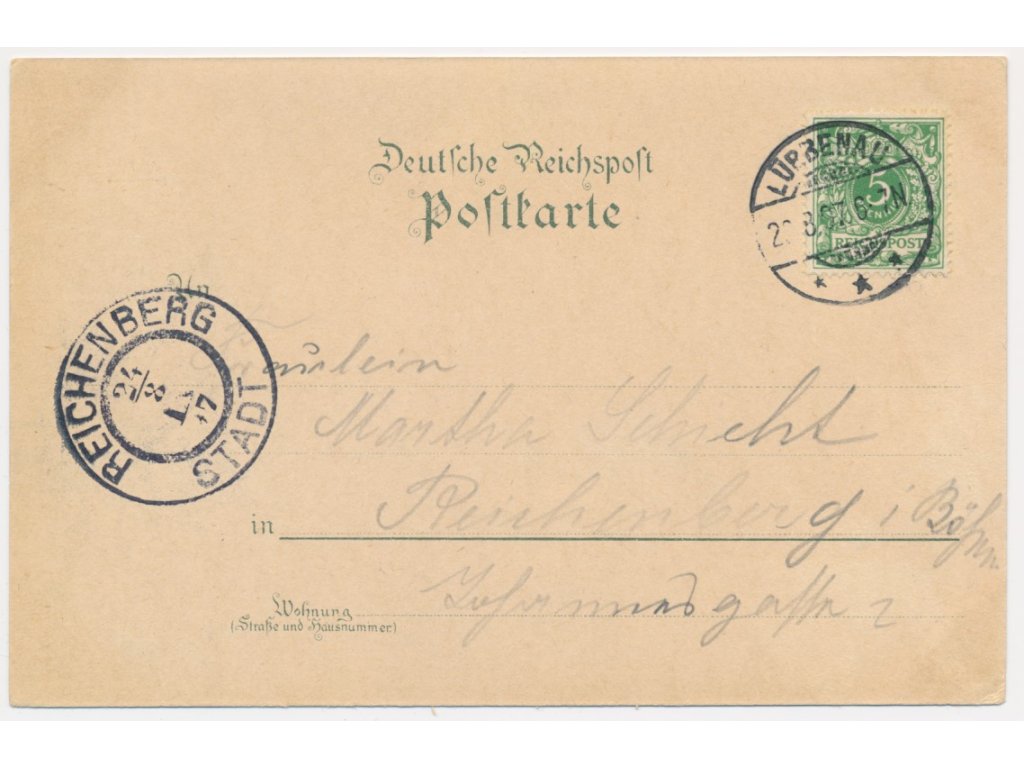 Deutsche Reichspost
Postkarte
LÜBBENAU
8.97. 6-7N
5
PFENNIG
REICHSPOST
An
REICHENBERG
STADT
24/8
Fräulein
Martha Schicht
in Reichenberg i Böhm
Wohnung
(Straße und Hausnummer)
Johannesgasse